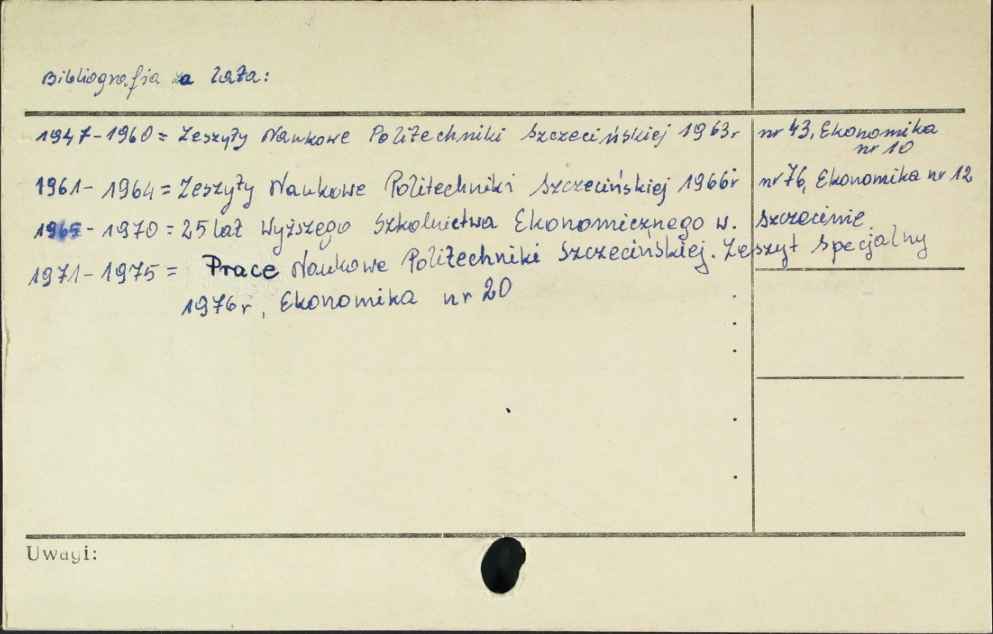 Bibliografia za lata:
1947-1960 = Zeszyty Naukowe Politechniki Szczecińskiej 1963r nr 43, Ekonomika
nr 10
1961-1964 = Zeszyty Naukowe Politechniki Szczecińskiej 1966r nr 76, Ekonomika nr 12
1965-1970 = 25 lat Wyższego Szkolnictwa Ekonomicznego w. Szczecinie.
1971-1975 = Prace Naukowe Politechniki Szczecińskiej. Zeszyt Specjalny
1976r, Ekonomika nr 20
Uwagi: